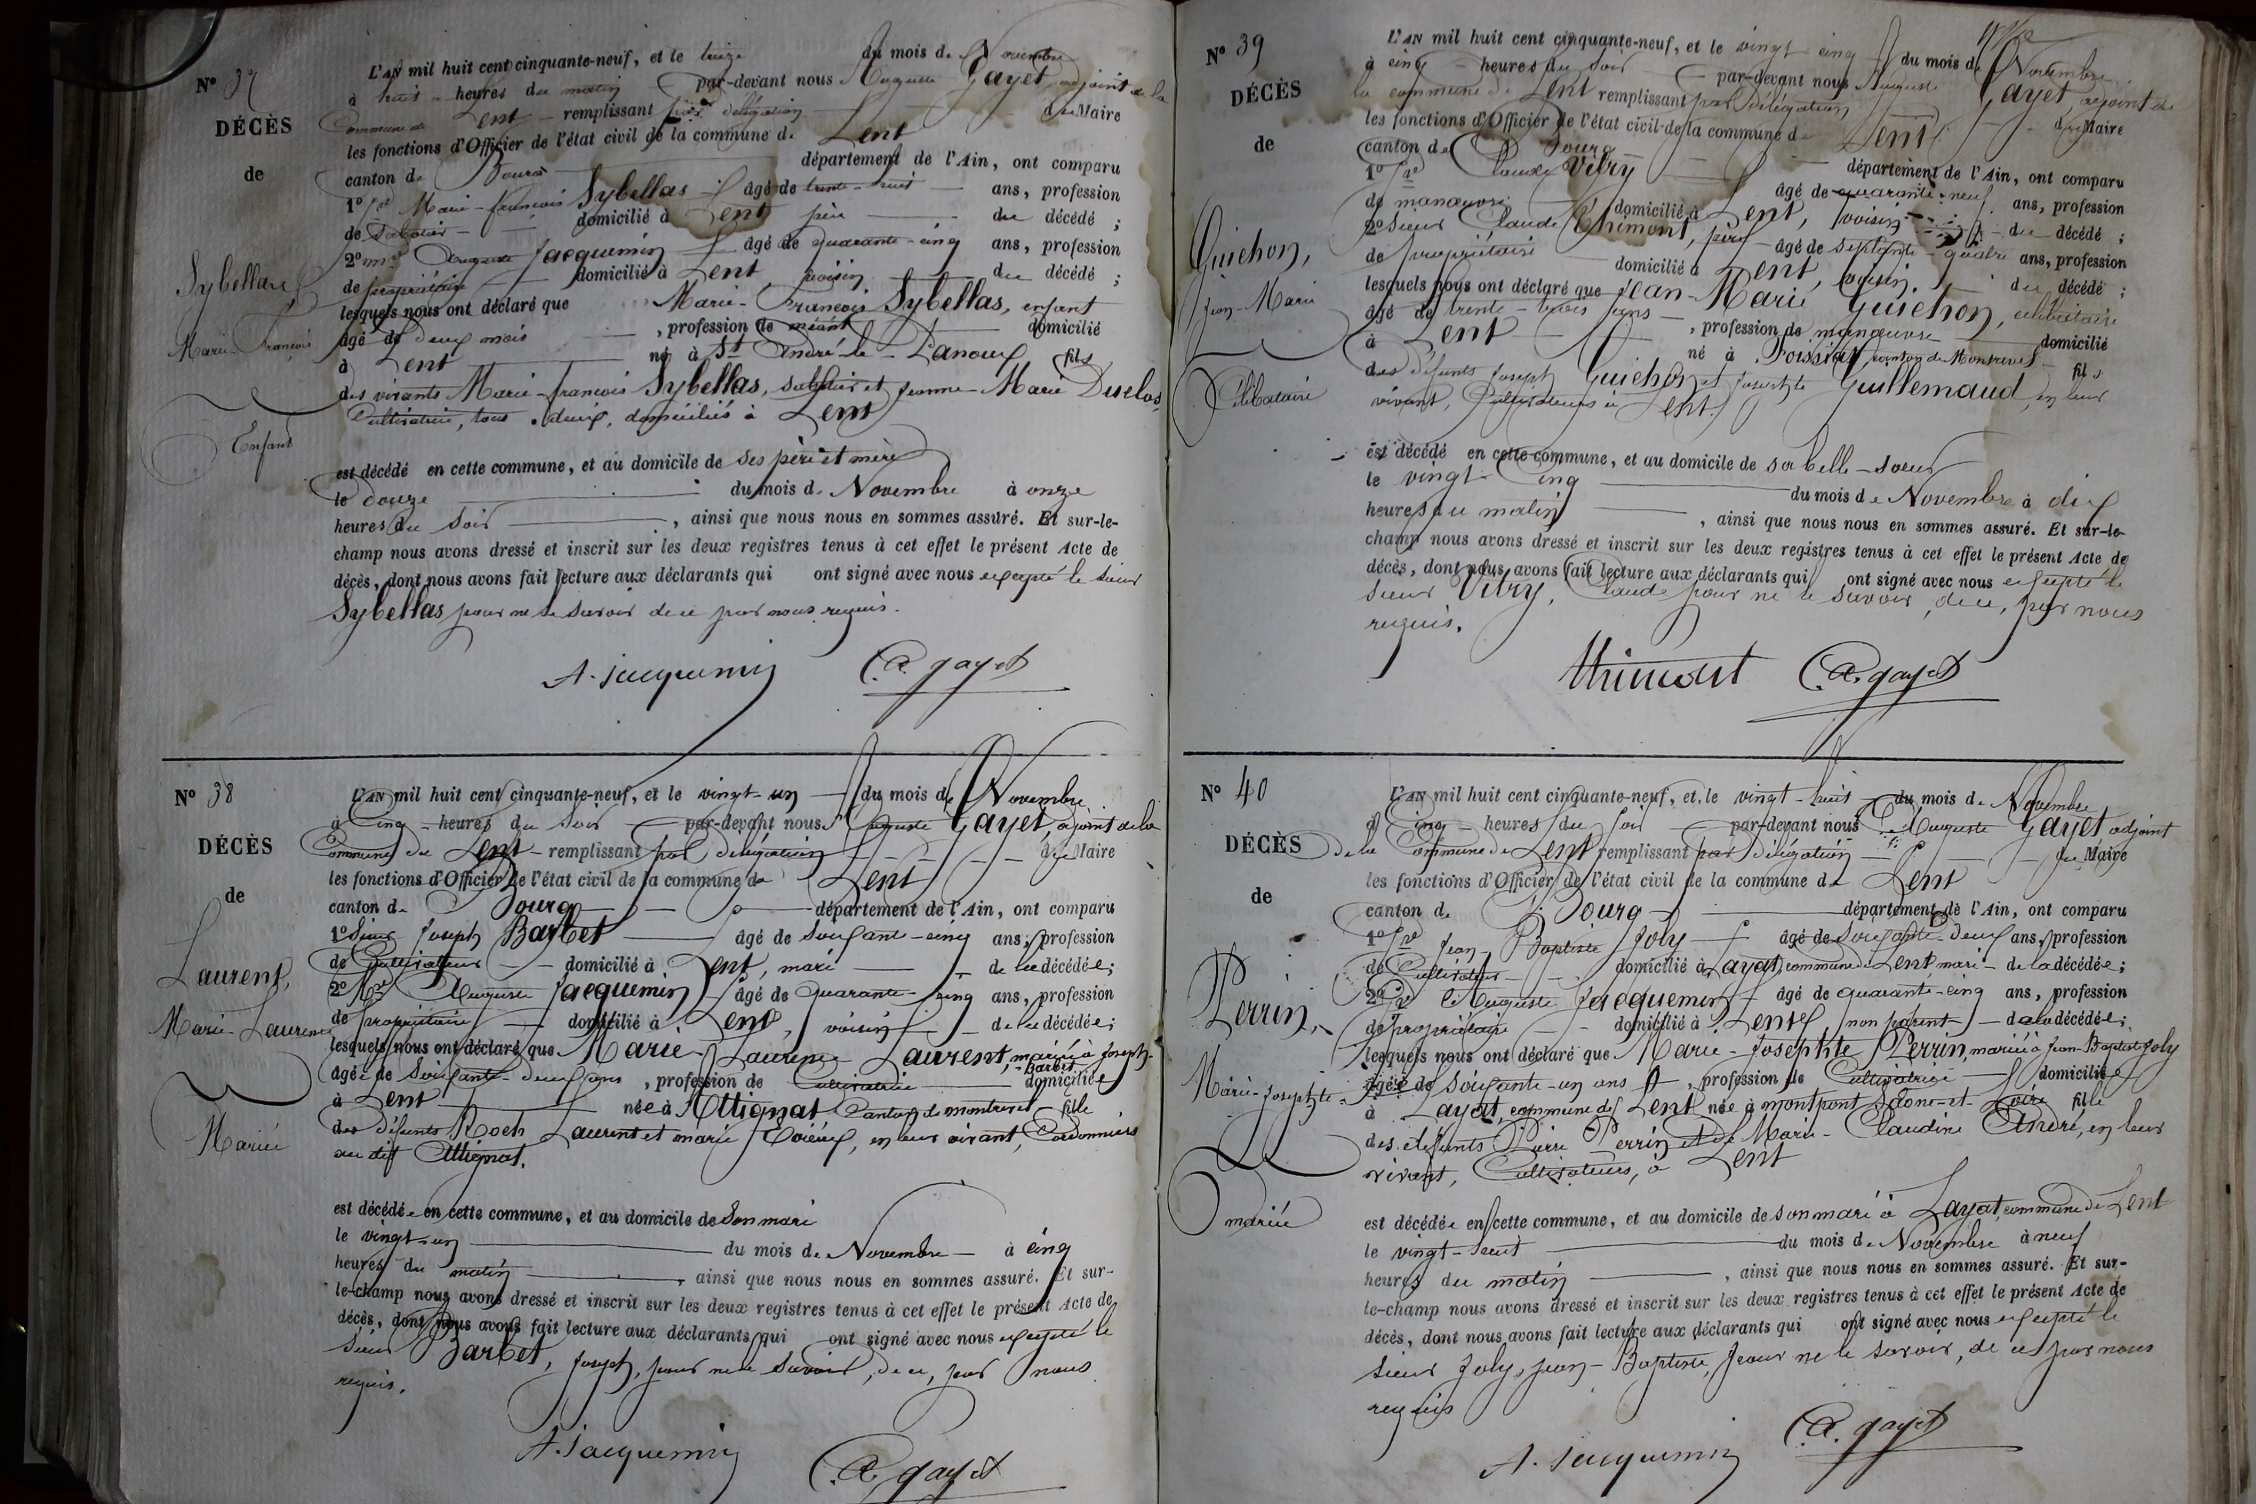 N° 37
DÉCÈS
de
Sybellas
Marie-François
Enfant
L'AN mil huit cent cinquante-neuf, et le treize du mois de Novembre
à huit heures du matin par-devant nous Auguste Gayet, adjoint de la
commune de Lent remplissant par délégation du Maire
les fonctions d'Officier de l'état civil de la commune de Lent
canton de Bourg département de l'Ain, ont comparu
1° Sr Marie-françois Sybellas âgé de trente-huit ans, profession
de sabotier domicilié à Lent père du décédé ;
2° mr Auguste Jacquemin âgé de quarante-cinq ans, profession
de propriétaire domicilié à Lent, voisin du décédé ;
lesquels nous ont déclaré que Marie-François Sybellas, enfant
âgé de deux mois, profession de néant domicilié
à Lent né à St André-le-Panoux fils
des vivants Marie-françois Sybellas, sabotier et jeanne-Marie Duclos,
Cultivatrice, tous deux, domiciliés à Lent
est décédé en cette commune, et au domicile de ses père et mère
le douze du mois de Novembre à onze
heures du soir, ainsi que nous nous en sommes assuré. Et sur-le-
champ nous avons dressé et inscrit sur les deux registres tenus à cet effet le présent Acte de
décès, dont nous avons fait lecture aux déclarants qui ont signé avec nous excepté le sieur
Sybellas pour ne le savoir de ce par nous requis.
A. jacquemin A. gayet
N° 38
DÉCÈS
de
Laurent,
Marie-Laurence
Mariée
L'AN mil huit cent cinquante-neuf, et le vingt-un du mois de Novembre
à Cinq heures du Soir par-devant nous Auguste Gayet, adjoint de la
Commune de Lent remplissant par délégation du Maire
les fonctions d'Officier de l'état civil de la commune de Lent
canton de Bourg département de l'Ain, ont comparu
1° Sieur Joseph Barbet âgé de soixante-cinq ans, profession
de Cultivateur domicilié à Lent, mari de la décédée ;
2° Mr Auguste Jacquemin âgé de Quarante-cinq ans, profession
de propriétaire domicilié à Lent, voisin de la décédée ;
lesquels nous ont déclaré que Marie-Laurence Laurent, mariée à Joseph-Barbet
âgée de soixante-deux ans, profession de Cultivatrice domiciliée
à Lent née à Attignat Canton de montrevel fille
des défunts Roch Laurent et marie, en leur vivant, Cordonniers
au dit Attignat.
est décédée en cette commune, et au domicile de Son mari
le vingt-un du mois de Novembre à cinq
heures du matin, ainsi que nous nous en sommes assuré. Et sur-
le-champ nous avons dressé et inscrit sur les deux registres tenus à cet effet le présent Acte de
décès, dont nous avons fait lecture aux déclarants qui ont signé avec nous excepté le
sieur Barbet, joseph, pour ne le savoir, de ce, par nous
requis.
A. jacquemin A. gayet
N° 39
DÉCÈS
de
Guichon,
Jean-Marie
Célibataire
L'AN mil huit cent cinquante-neuf, et le vingt cinq du mois de Novembre
à cinq heures du soir par-devant nous Auguste Gayet adjoint de
la commune de Lent remplissant par délégation du Maire
les fonctions d'Officier de l'état civil de la commune de Lent
canton de Bourg département de l'Ain, ont comparu
1° Sr Claude Vitry âgé de quarante-neuf ans, profession
de manœuvre domicilié à Lent, voisin du décédé ;
2° Sieur Claude Thimont, père âgé de septante-quatre ans, profession
de propriétaire domicilié à Lent, voisin du décédé ;
lesquels nous ont déclaré que Jean-Marie Guichon, célibataire
âgé de trente-trois ans, profession de manœuvre domicilié
à Lent né à Foissiat, canton de Montrevel fils
des défunts joseph Guichon et josephte Guillemaud, en leur
vivant, Cultivateurs à Lent.
est décédé en cette commune, et au domicile de sa belle-sœur
le vingt-Cinq du mois de Novembre à dix
heures du matin, ainsi que nous nous en sommes assuré. Et sur-le-
champ nous avons dressé et inscrit sur les deux registres tenus à cet effet le présent Acte de
décès, dont nous avons fait lecture aux déclarants qui ont signé avec nous excepté le
sieur Vitry, Claude pour ne le savoir, de ce, par nous
requis.
thimont A. gayet
N° 40
DÉCÈS
de
Perrin,
Marie-josephte
mariée
L'AN mil huit cent cinquante-neuf, et le vingt-huit du mois de Novembre
à cinq heures du soir par-devant nous Auguste Gayet adjoint
de la Commune de Lent remplissant par délégation du Maire
les fonctions d'Officier de l'état civil de la commune de Lent
canton de Bourg département de l'Ain, ont comparu
1° Sr Jean Baptiste Joly âgé de soixante-deux ans, profession
de Cultivateur domicilié à Layat, commune de Lent mari de la décédée ;
2° Sr Auguste Jacquemin âgé de quarante-cinq ans, profession
de propriétaire domicilié à Lent, non parent de la décédée ;
lesquels nous ont déclaré que Marie-Josephte Perrin, mariée à Jean-Baptiste Joly
âgée de soixante-un ans, profession de Cultivatrice domiciliée
à Layat, commune de Lent née à montpont Saône-et-Loire fille
des défunts Pierre Perrin et de Marie-Claudine André, en leur
vivant, Cultivateurs, à Lent
est décédée en cette commune, et au domicile de son mari à Layat, commune de Lent
le vingt-huit du mois de Novembre à neuf
heures du matin, ainsi que nous nous en sommes assuré. Et sur-
le-champ nous avons dressé et inscrit sur les deux registres tenus à cet effet le présent Acte de
décès, dont nous avons fait lecture aux déclarants qui ont signé avec nous excepté le
sieur Joly, jean-Baptiste, pour ne le savoir, de ce par nous
requis
A. jacquemin A. gayet